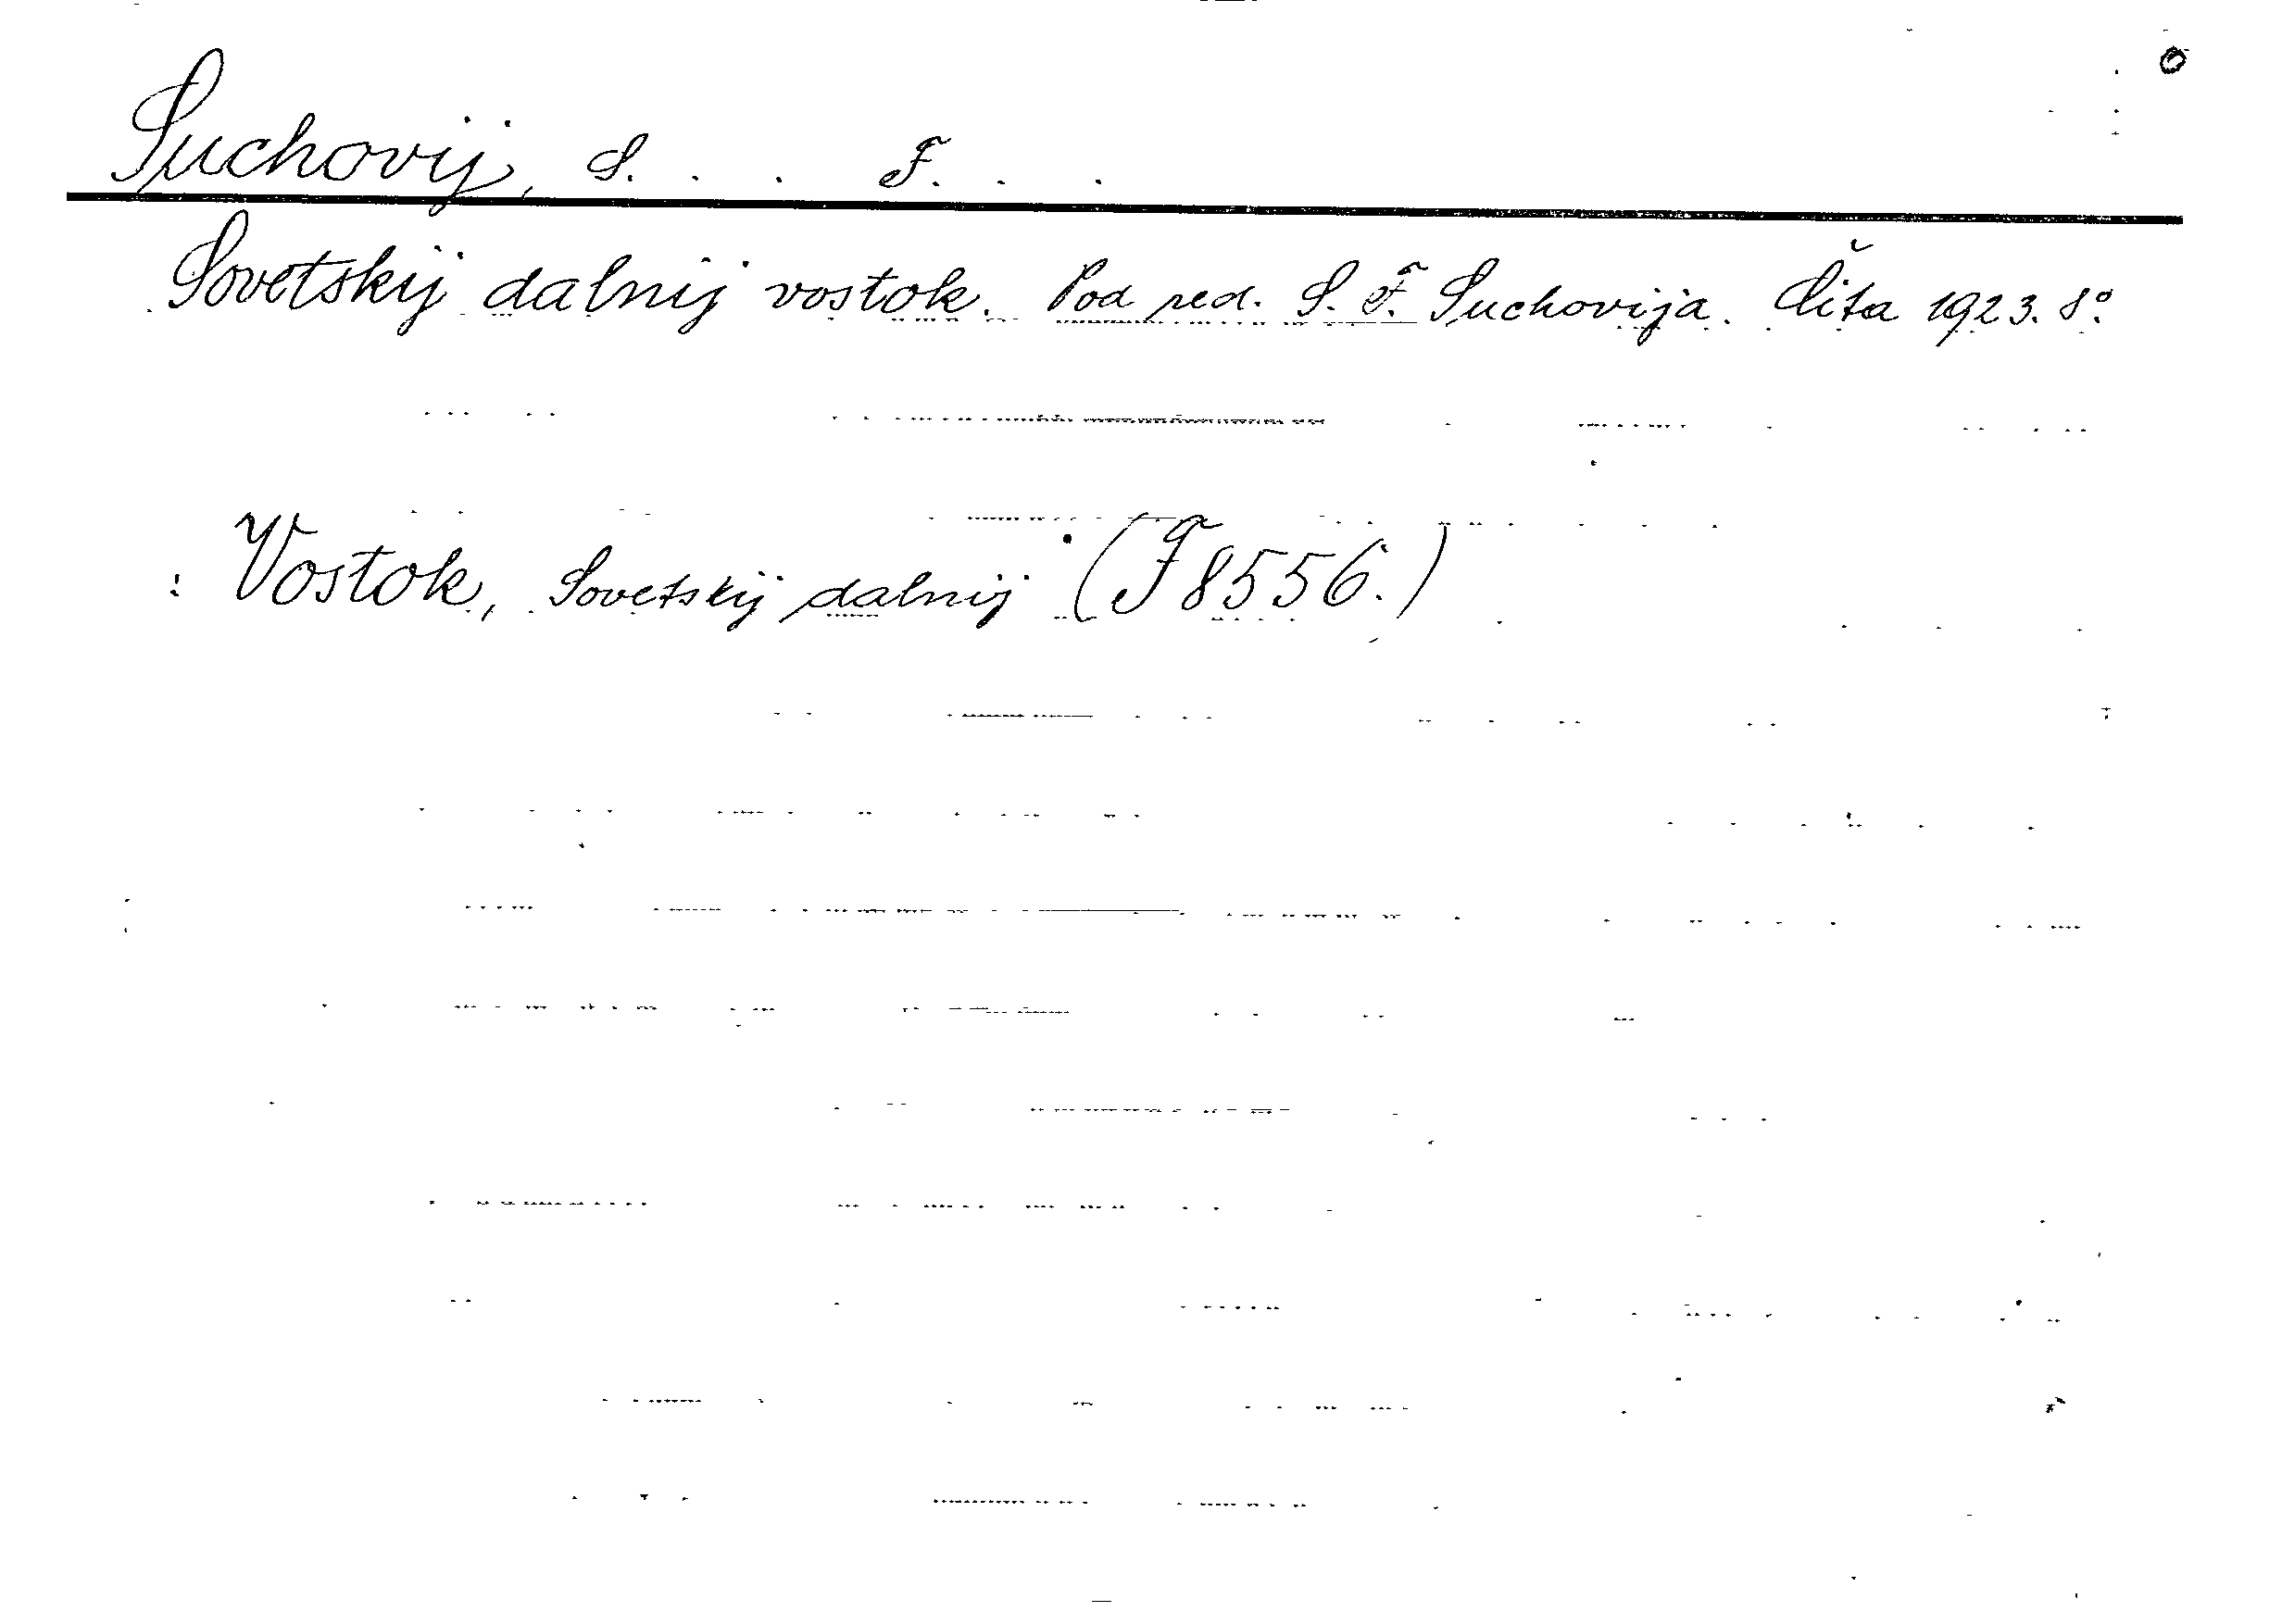 Suchovij, S. . . F. . .
Sovetskij dalnij vostok. Pod red. S. F. Suchovija. Čita 1923. 8°.
: Vostok, Sovetskij dalnij (F 8556.)